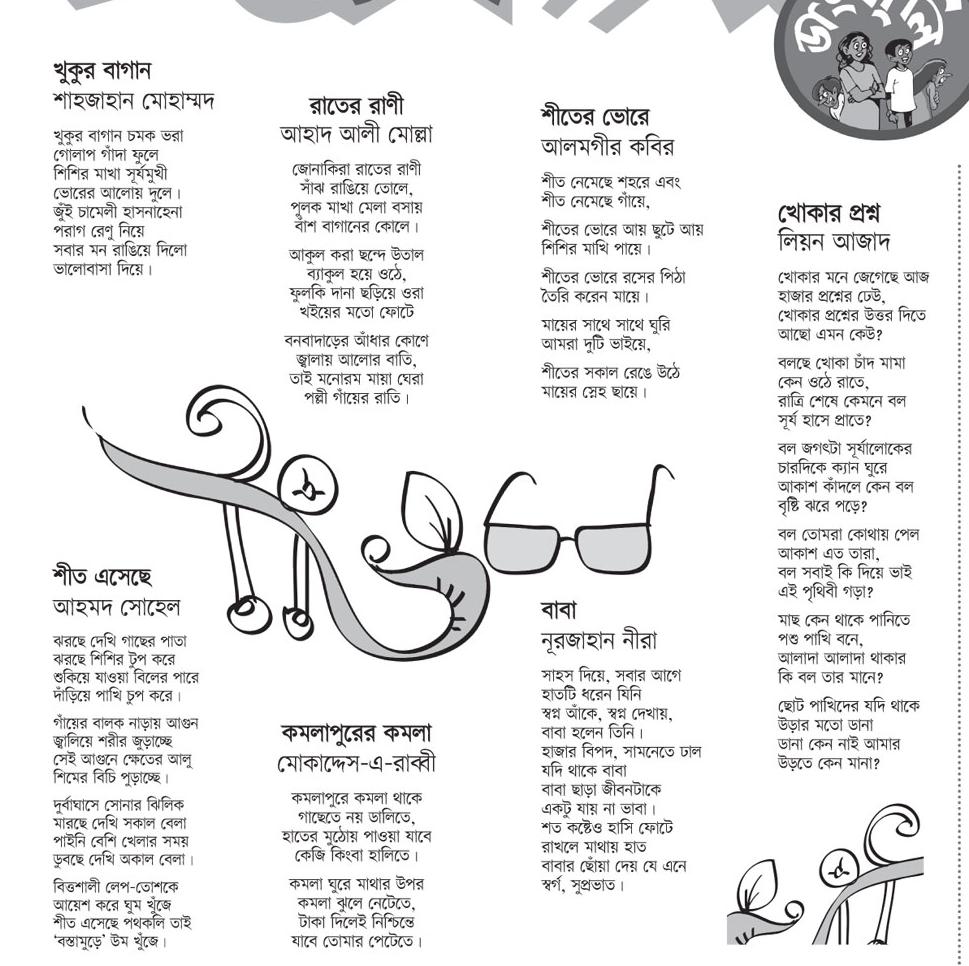 খুকুর বাগান
শাহজাহান মোহাম্মদ
খুকুর বাগান চমক ভরা
গোলাপ গাঁদা ফুলে
শিশির মাখা সূর্যমুখী
ভোরের আলোয় দুলে।
জুঁই চামেলী হাসনাহেনা
পরাগ রেণু নিয়ে
সবার মন রাঙিয়ে দিলো
ভালোবাসা দিয়ে।
রাতের রাণী
আহাদ আলী মোল্লা
জোনাকিরা রাতের রাণী
সাঁঝ রাঙিয়ে তোলে,
পুলক মাখা মেলা বসায়
বাঁশ বাগানের কোলে।
আকুল করা ছন্দে উতাল
ব্যাকুল হয়ে ওঠে,
ফুলকি দানা ছড়িয়ে ওরা
খইয়ের মতো ফোটে
বনবাদাড়ের আঁধার কোণে
জ্বালায় আলোর বাতি,
তাই মনোরম মায়া ঘেরা
পল্লী গাঁয়ের রাতি।
শীতের ভোরে
আলমগীর কবির
শীত নেমেছে শহরে এবং
শীত নেমেছে গাঁয়ে,
শীতের ভোরে আয় ছুটে আয়
শিশির মাখি পায়ে।
শীতের ভোরে রসের পিঠা
তৈরি করেন মায়ে।
মায়ের সাথে সাথে ঘুরি
আমরা দুটি ভাইয়ে,
শীতের সকাল রেঙে উঠে
মায়ের স্নেহ ছায়ে।
খোকার প্রশ্ন
লিয়ন আজাদ
খোকার মনে জেগেছে আজ
হাজার প্রশ্নের ঢেউ,
খোকার প্রশ্নের উত্তর দিতে
আছো এমন কেউ?
বলছে খোকা চাঁদ মামা
কেন ওঠে রাতে,
রাত্রি শেষে কেমনে বল
সূর্য হাসে প্রাতে?
বল জগৎটা সূর্যালোকের
চারদিকে ক্যান ঘুরে
আকাশ কাঁদলে কেন বল
বৃষ্টি ঝরে পড়ে?
বল তোমরা কোথায় পেল
আকাশ এত তারা,
বল সবাই কি দিয়ে ভাই
এই পৃথিবী গড়া?
মাছ কেন থাকে পানিতে
পশু পাখি বনে,
আলাদা আলাদা থাকার
কি বল তার মানে?
ছোট পাখিদের যদি থাকে
উড়ার মতো ডানা
ডানা কেন নাই আমার
উড়তে কেন মানা?
শীত এসেছে
আহমদ সোহেল
ঝরছে দেখি গাছের পাতা
ঝরছে শিশির টুপ করে
শুকিয়ে যাওয়া বিলের পারে
দাঁড়িয়ে পাখি চুপ করে।
গাঁয়ের বালক নাড়ায় আগুন
জ্বালিয়ে শরীর জুড়াচ্ছে
সেই আগুনে ক্ষেতের আলু
শিমের বিচি পুড়াচ্ছে।
দুর্বাঘাসে সোনার ঝিলিক
মারছে দেখি সকাল বেলা
পাইনি বেশি খেলার সময়
ডুবছে দেখি অকাল বেলা।
বিত্তশালী লেপ-তোশকে
আয়েশ করে ঘুম খুঁজে
শীত এসেছে পথকলি তাই
‘বস্তামুড়ে’ উম খুঁজে।
কমলাপুরের কমলা
মোকাদ্দেস-এ-রাব্বী
কমলাপুরে কমলা থাকে
গাছেতে নয় ডালিতে,
হাতের মুঠোয় পাওয়া যাবে
কেজি কিংবা হালিতে।
কমলা ঘুরে মাথার উপর
কমলা ঝুলে নেটেতে,
টাকা দিলেই নিশ্চিন্তে
যাবে তোমার পেটেতে।
বাবা
নূরজাহান নীরা
সাহস দিয়ে, সবার আগে
হাতটি ধরেন যিনি
স্বপ্ন আঁকে, স্বপ্ন দেখায়,
বাবা হলেন তিনি।
হাজার বিপদ, সামনেতে ঢাল
যদি থাকে বাবা
বাবা ছাড়া জীবনটাকে
একটু যায় না ভাবা।
শত কষ্টেও হাসি ফোটে
রাখলে মাথায় হাত
বাবার ছোঁয়া দেয় যে এনে
স্বর্গ, সুপ্রভাত।